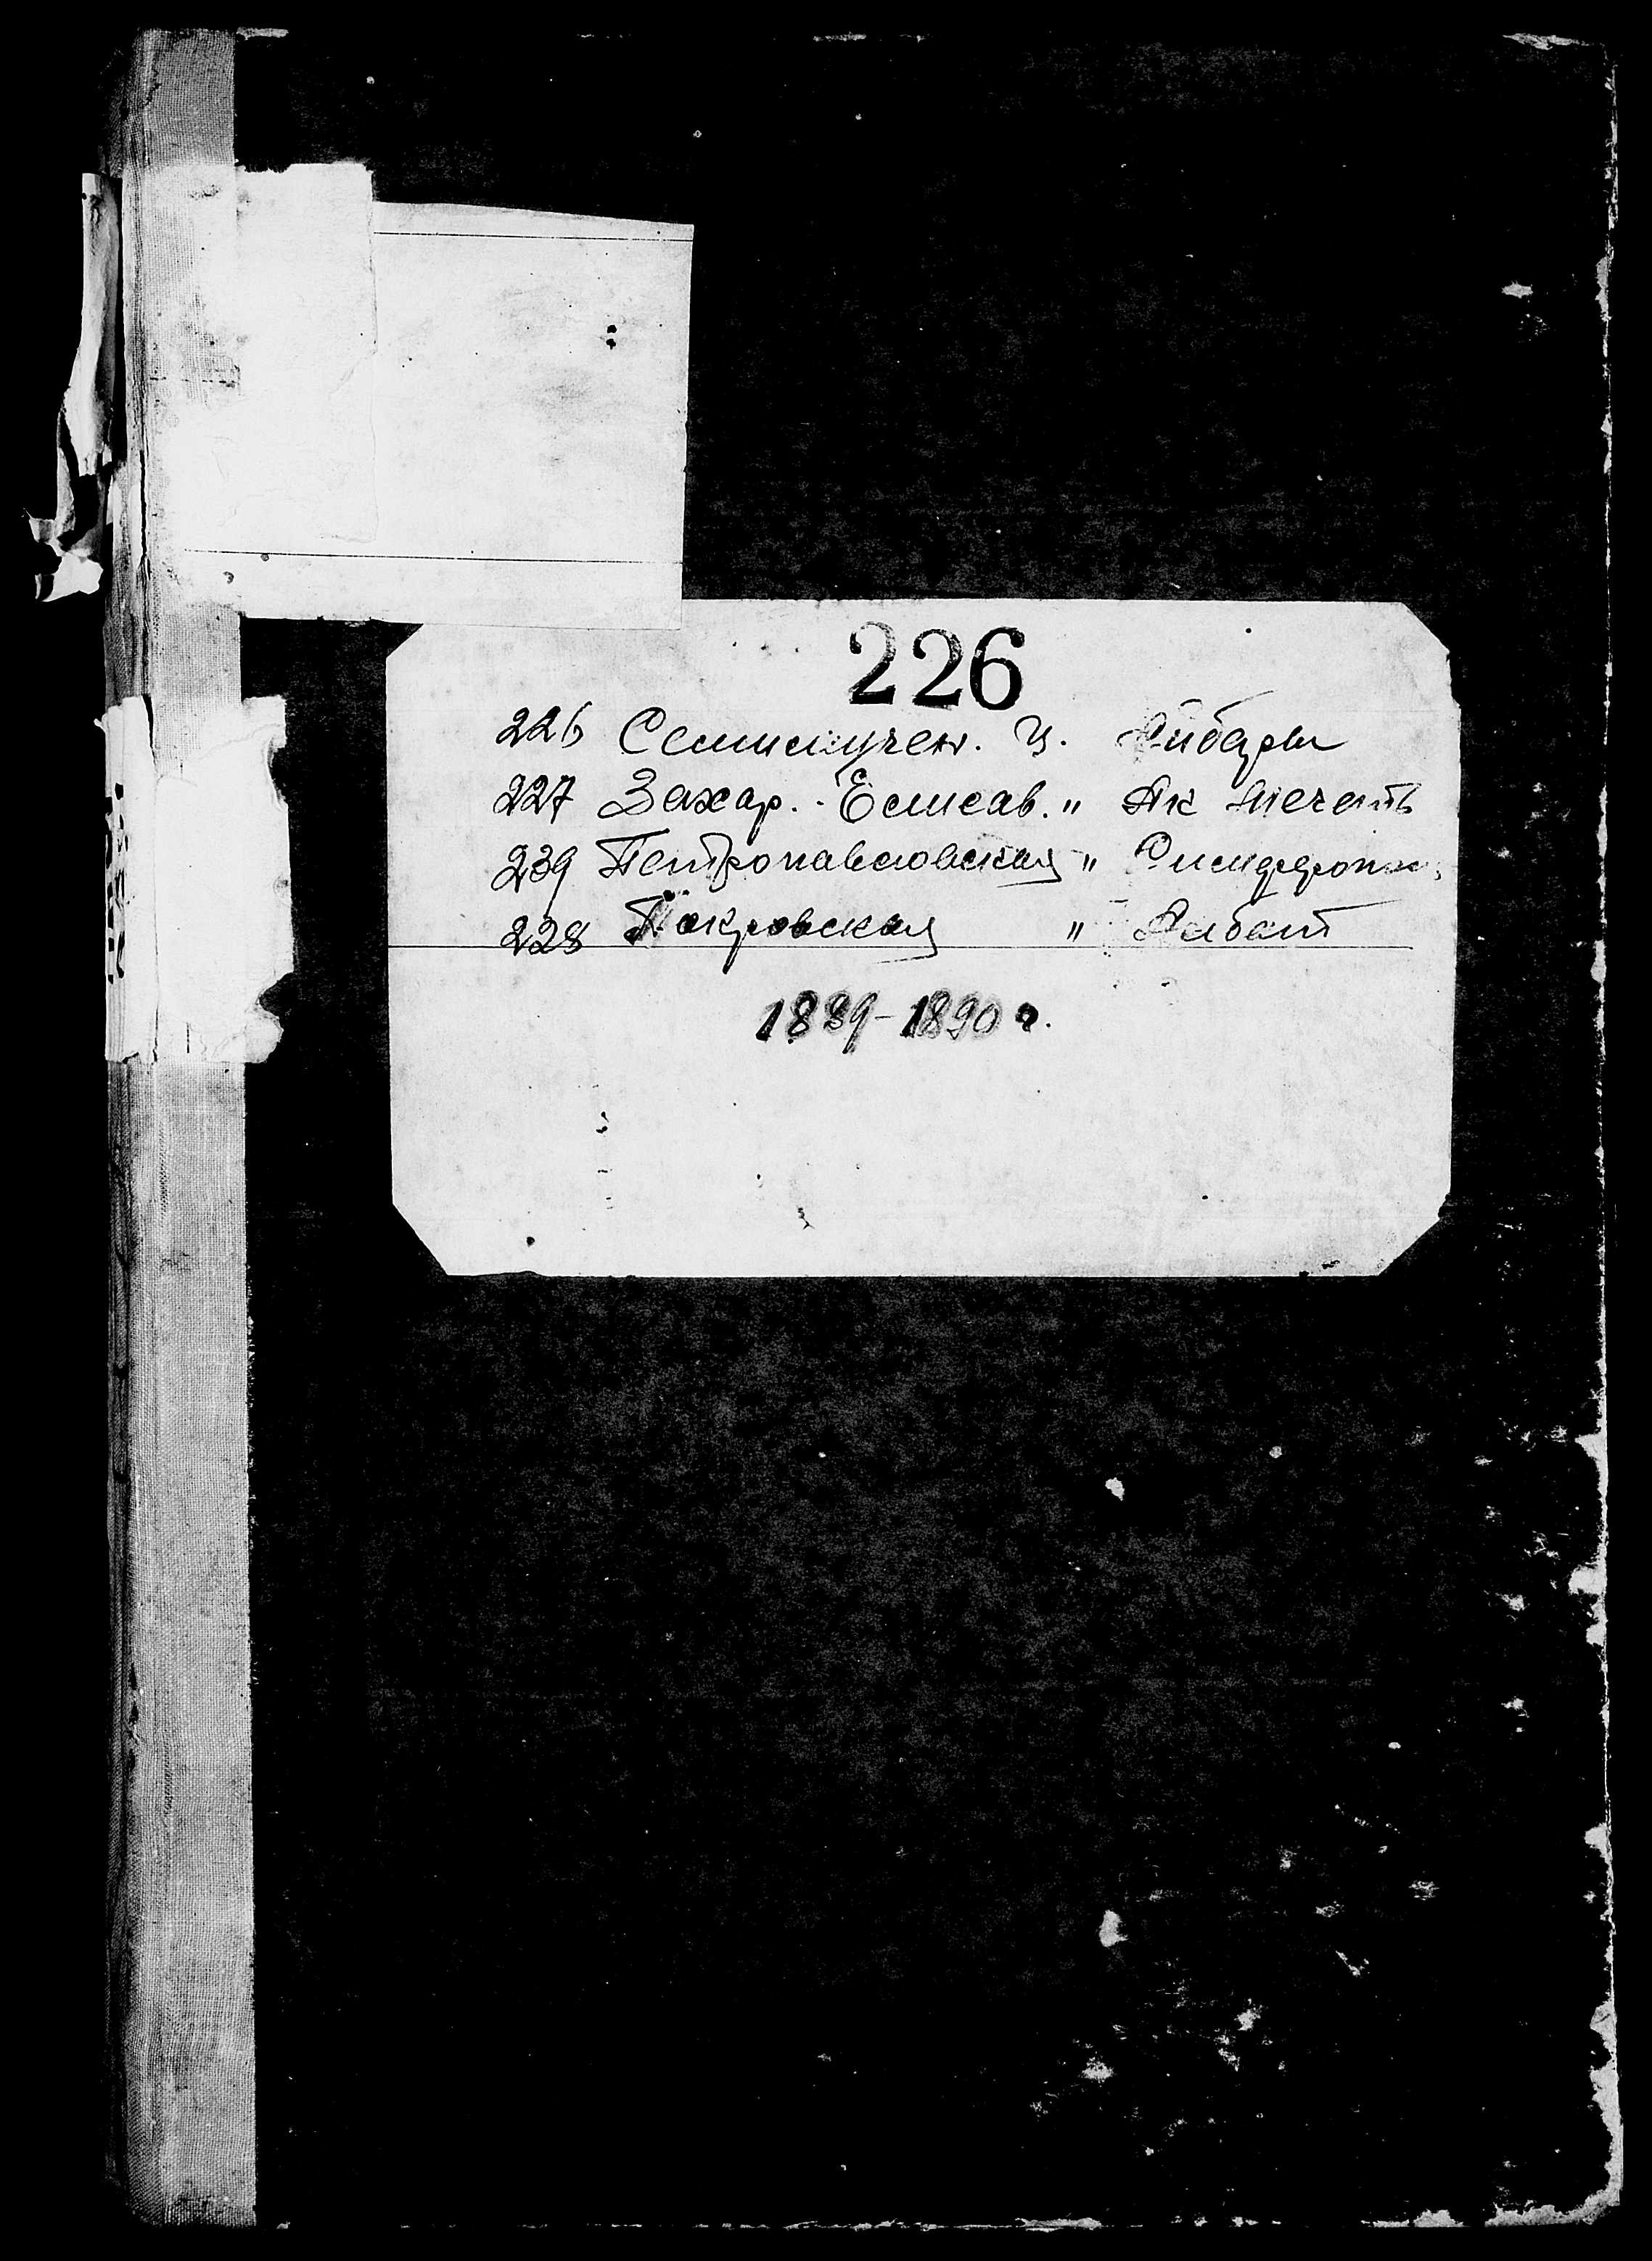 226
226 Семимучен. ц. Айбары
227 Захар. - Елисав. " Ак Мечеть
239 Петропавловская " Симфероп.
228 Покровская " Алибот
1889-1890 г.